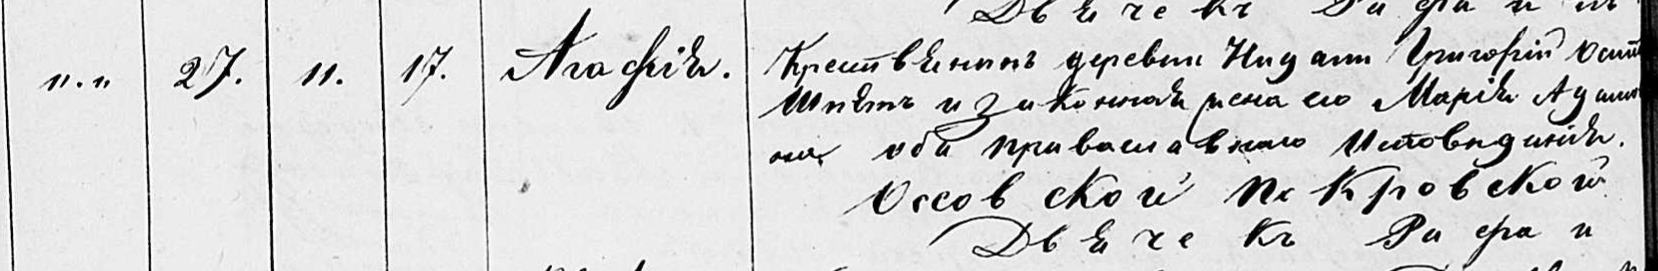 Дьячекъ Рафаи
„. „ 27. 11. 17. Агафія. Крестьянинъ деревни Григорій Осип
и законная жена его Марія Адам
оба православнаго исповѣданія.
Оссовской Покровской
Дьячекъ Рафаи